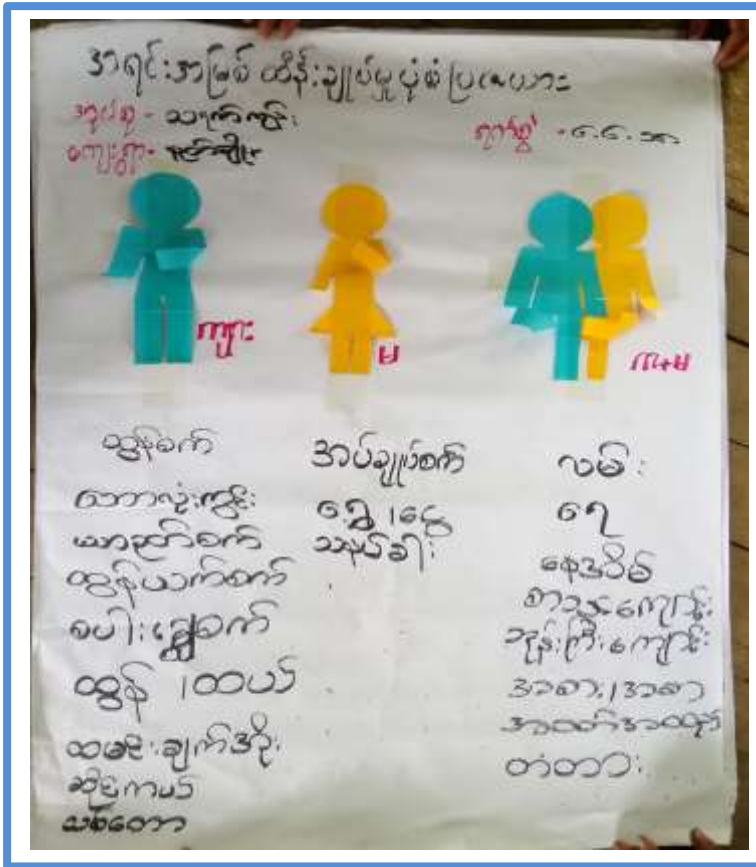 အရင်းအမြစ် ထိန်းချုပ်မှုပုံစံ ပြဇယား
အုပ်စု - သရက်ကျွန်း
ရက်စွဲ - ၆.၆.
ကျေးရွာ-
ကျား
မ
ကျား+မ
ထွန်စက်
ဘောလုံးကွင်း
ထွန်ယက်စက်
စပါးချွေစက်
ထွန် ၊ ထယ်
ထမင်းချက်အိုး
ဆိုင်ကယ်
သစ်တော
အပ်ချုပ်စက်
ရွှေ ၊ ငွေ
သနပ်ခါး
လမ်း
ရေ
နေအိမ်
စာသင်ကျောင်း
ဘုန်းကြီးကျောင်း
အစား ၊ အစာ
အဝတ်အထည်
တံတား